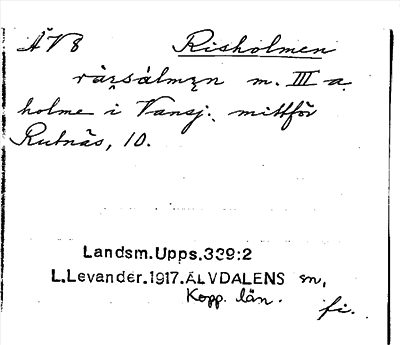 ÄV8 Risholmen
m. III a.
holme i Vansj. mittför
Rutnäs, 10.
Landsm.Upps.339:2
L.Levander.1917.ÄLVDALENS sn,
Kopp. län.
fi.